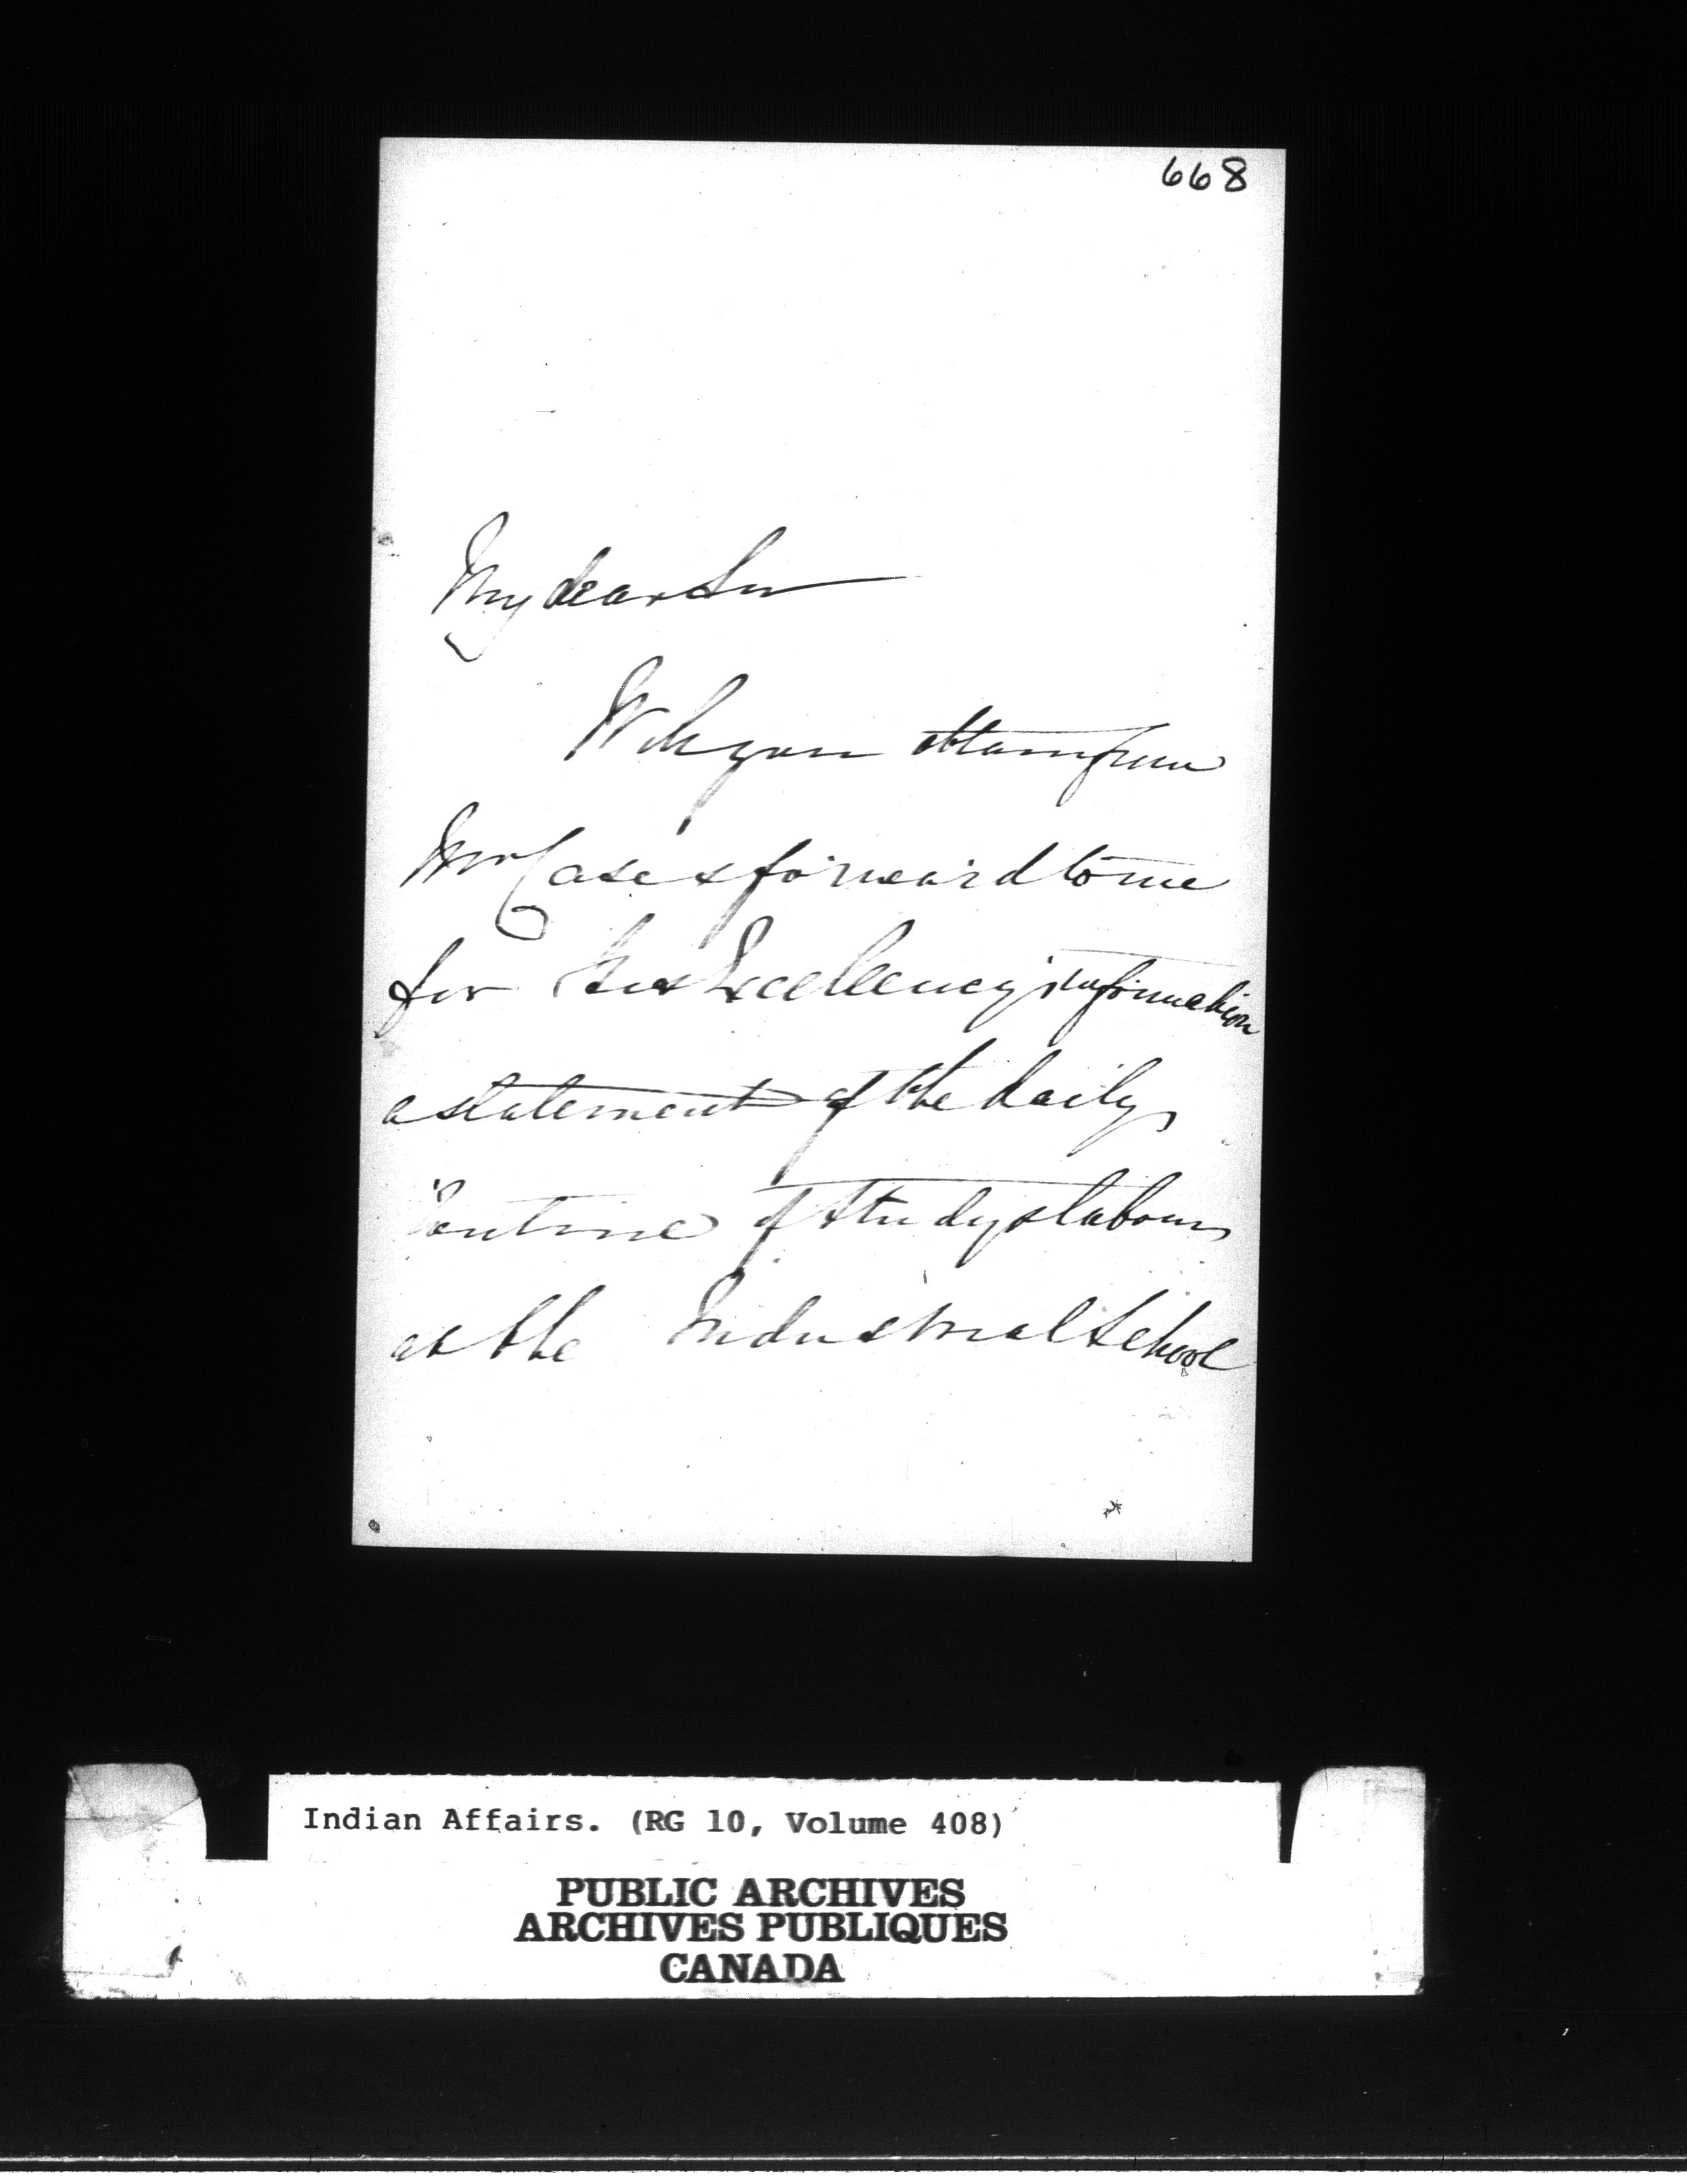 668
My dear Sir
Will you obtain from
Mr Case & forward to me
for His Excellency's information
a statement of the daily
routine of study & labour
at the Industrial School
Indian Affairs. (RG 10, Volume 408)
PUBLIC ARCHIVES
ARCHIVES PUBLIQUES
CANADA